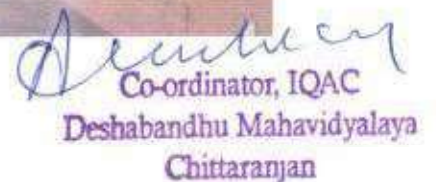 Co-ordinator, IQAC
Deshabandhu Mahavidyalaya
Chittaranjan